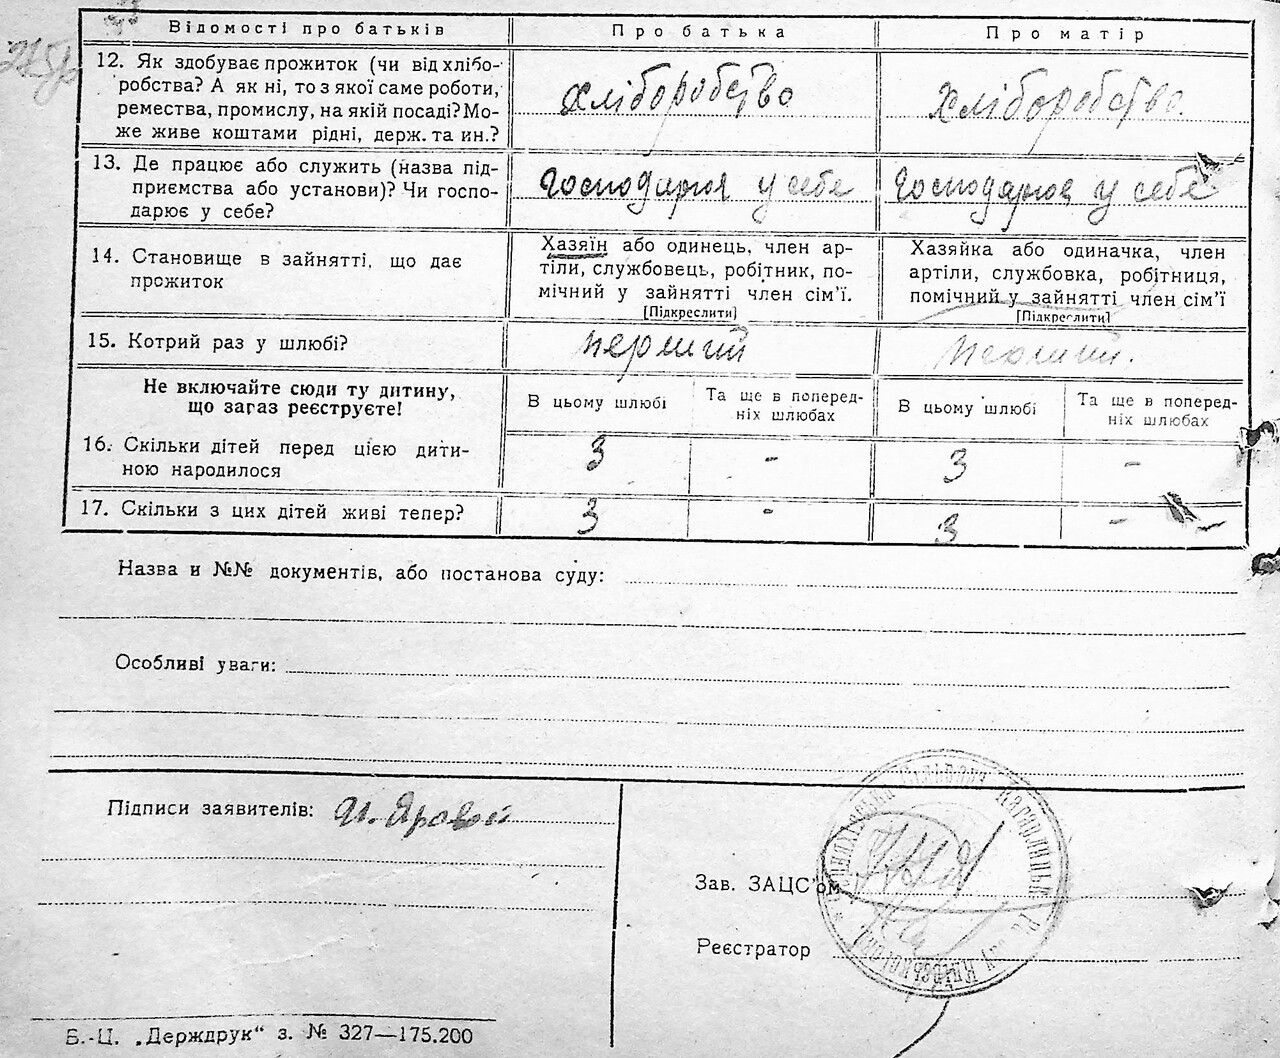 Відомості про батьків Про батька Про матір
12. Як здобуває прожиток (чи від хлібо-
робства? А як ні, то з якої саме роботи,
ремества, промислу, на якій посаді? Мо-
же живе коштами рідні, держ. та ин.?
хліборобство хліборобство.
13. Де працює або служить (назва під-
приємства або установи)? Чи госпо-
дарює у себе?
Господарює у себе Господарює у себе
14. Становище в зайнятті, що дає
прожиток
Хазяїн або одинець, член ар-
тіли, службовець, робітник, по-
мічний у зайнятті член сім’ї.
[Підкреслити]
Хазяйка або одиначка, член
артіли, службовка, робітниця,
помічний у зайнятті член сім’ї
[Підкреслити]
15. Котрий раз у шлюбі? перший перший.
Не включайте сюди ту дитину,
що загаз реєструєте!
В цьому шлюбі Та ще в поперед-
ніх шлюбах В цьому шлюбі Та ще в поперед-
ніх шлюбах
16. Скільки дітей перед цією дити-
ною народилося 3 - 3 -
17. Скільки з цих дітей живі тепер? 3 - 3 -
Назва и №№ документів, або постанова суду:
Особливі уваги:
Підписи заявителів: Яровий
Зав. ЗАЦС’ом
Реєстратор
Б.-Ц. „Держдрук“ з. № 327—175.200